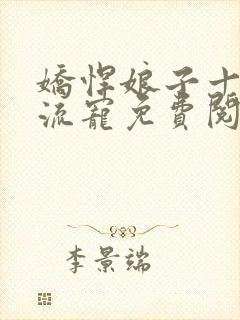 嬌悍娘子十
流寵免費閱
李景端